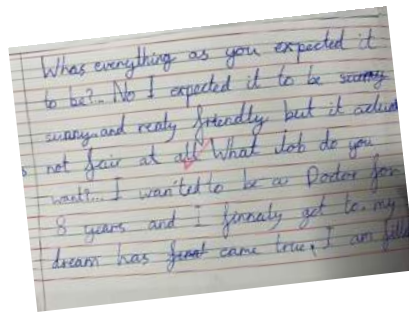 Whas everything as you expected it
to be?.. No I expected it to be sunny
sunny and realy friendly but it
not fair at all What Job do you
want?... I wanted to be a Doctor for
8 years and I finnaly get to. my
dream has came true, I am